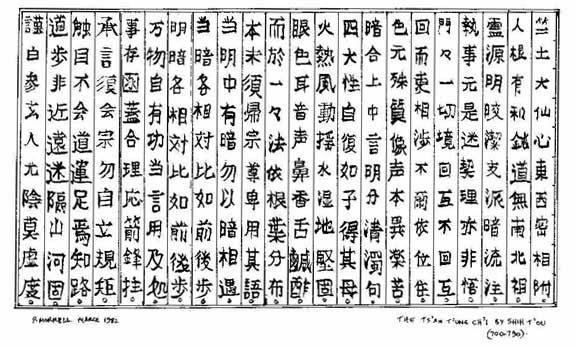 竺土大仙心東西密相附。
人根有和鈍道無南北祖。
靈源明皎潔支派暗流注。
執事元是迷契理亦非悟。
門々一切境回互不回互。
回而更相渉不爾依位住。
色元殊質像声本異楽苦。
暗合上中言明分清濁句。
四大性自復如子得其母。
火熱風動揺水湿地堅固。
眼色耳音声鼻香舌鹹酢。
而於一々法依根葉分布。
本末須帰宗尊卑用其語。
当明中有暗勿以暗相遇。
当暗各相対比如前後歩。
明暗各相対比如前後歩。
万物自有功当言用及処。
事存函蓋合理応箭鋒拄。
承言須会宗勿自立規矩。
触目不会道運足焉知路。
道歩非近遠迷隔山河固。
謹白参玄人光陰莫虚度。
MORRELL PEARCE 1982
THE TS'AN T'UNG CH'I BY SHIH T'OU
(700-790).